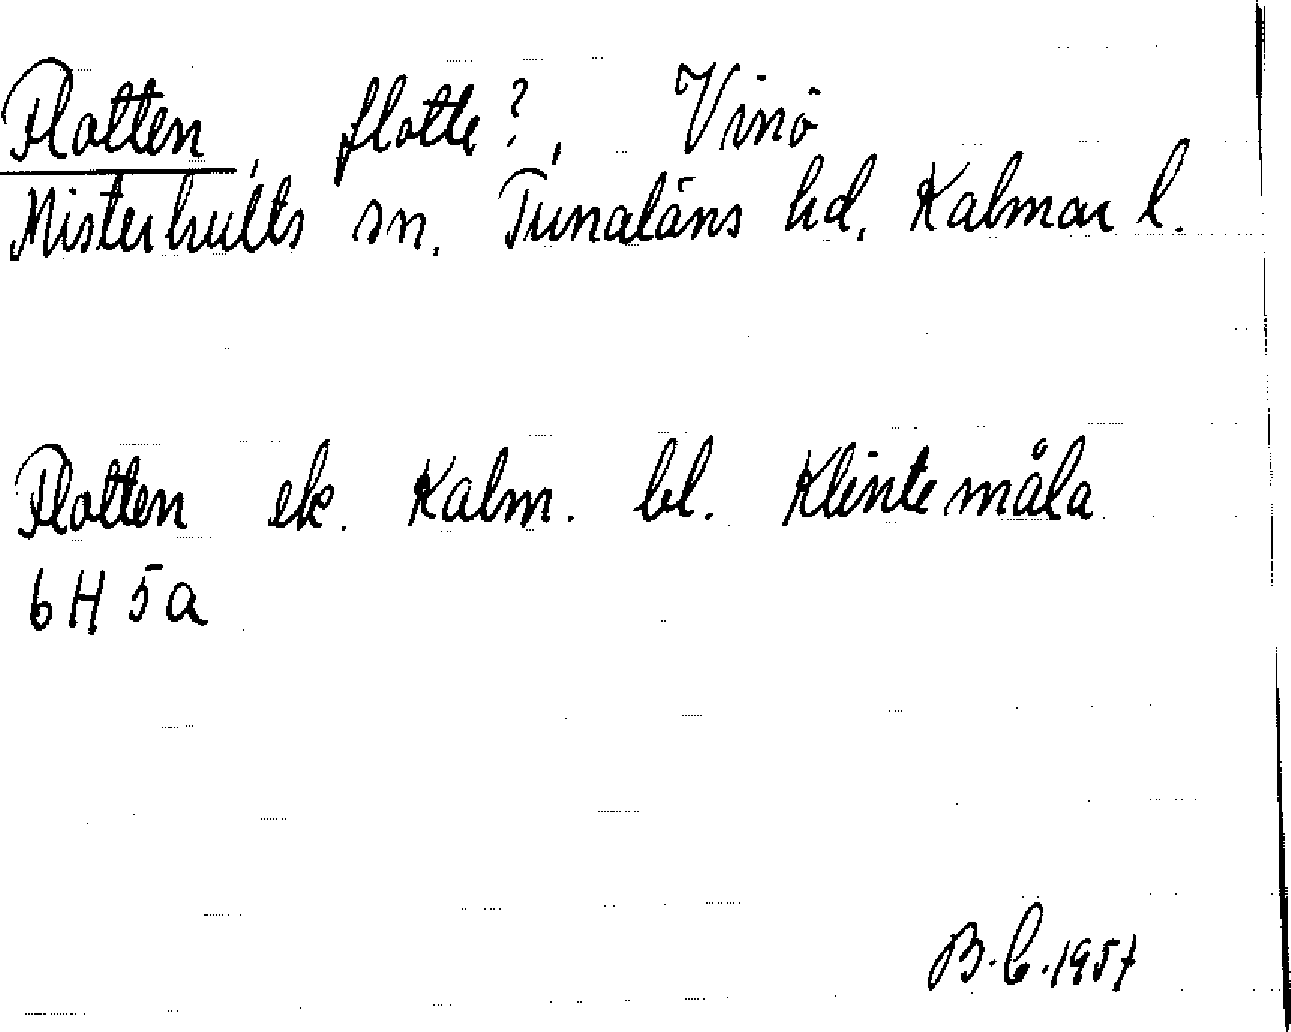 Flotten, flotte?, Vinö
Misterhults sn. Tunaläns hd. Kalmar l.
Flotten ek. Kalm. bl. Klintemåla
6 H 5a
B.C. 1957